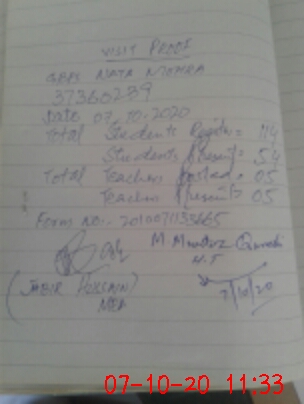 VISIT PROOF
GBPS NATA NTOHRA
37360289
Date 07.10.2020
Total Students Register = 114
Students Present = 54
Total Teachers Posted = 05
Teachers Present = 05
Form No:- 
M Qureshi
H.T
(JABIR HUSSAIN)
MEA
7/10/20
07-10-20 11:33